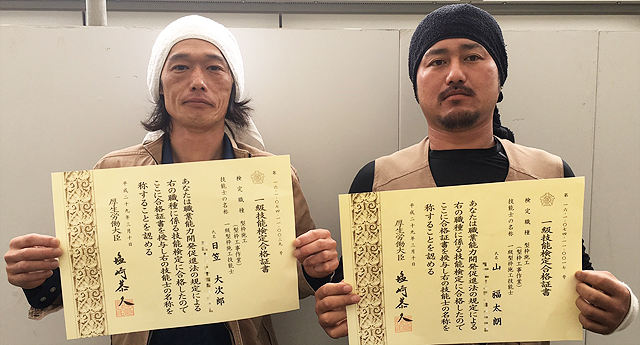 一級技能検定合格証書
検定職種 型枠施工
(型枠工事作業)
技能士の名称 一級型枠施工技能士
氏名 日笠 大次郎
あなたは職業能力開発促進法の規定による
右の職種に係る技能検定に合格したので
ここに合格証書を授与し右の技能士の名称を
称することを認める
平成二十九年 月十日
厚生労働大臣
塩崎恭久
一級技能検定合格証書
検定職種 型枠施工
(型枠工事作業)
技能士の名称 一級型枠施工技能士
氏名 山 福太朗
あなたは職業能力開発促進法の規定による
右の職種に係る技能検定に合格したので
ここに合格証書を授与し右の技能士の名称を
称することを認める
平成二十九年 月十日
厚生労働大臣
塩崎恭久